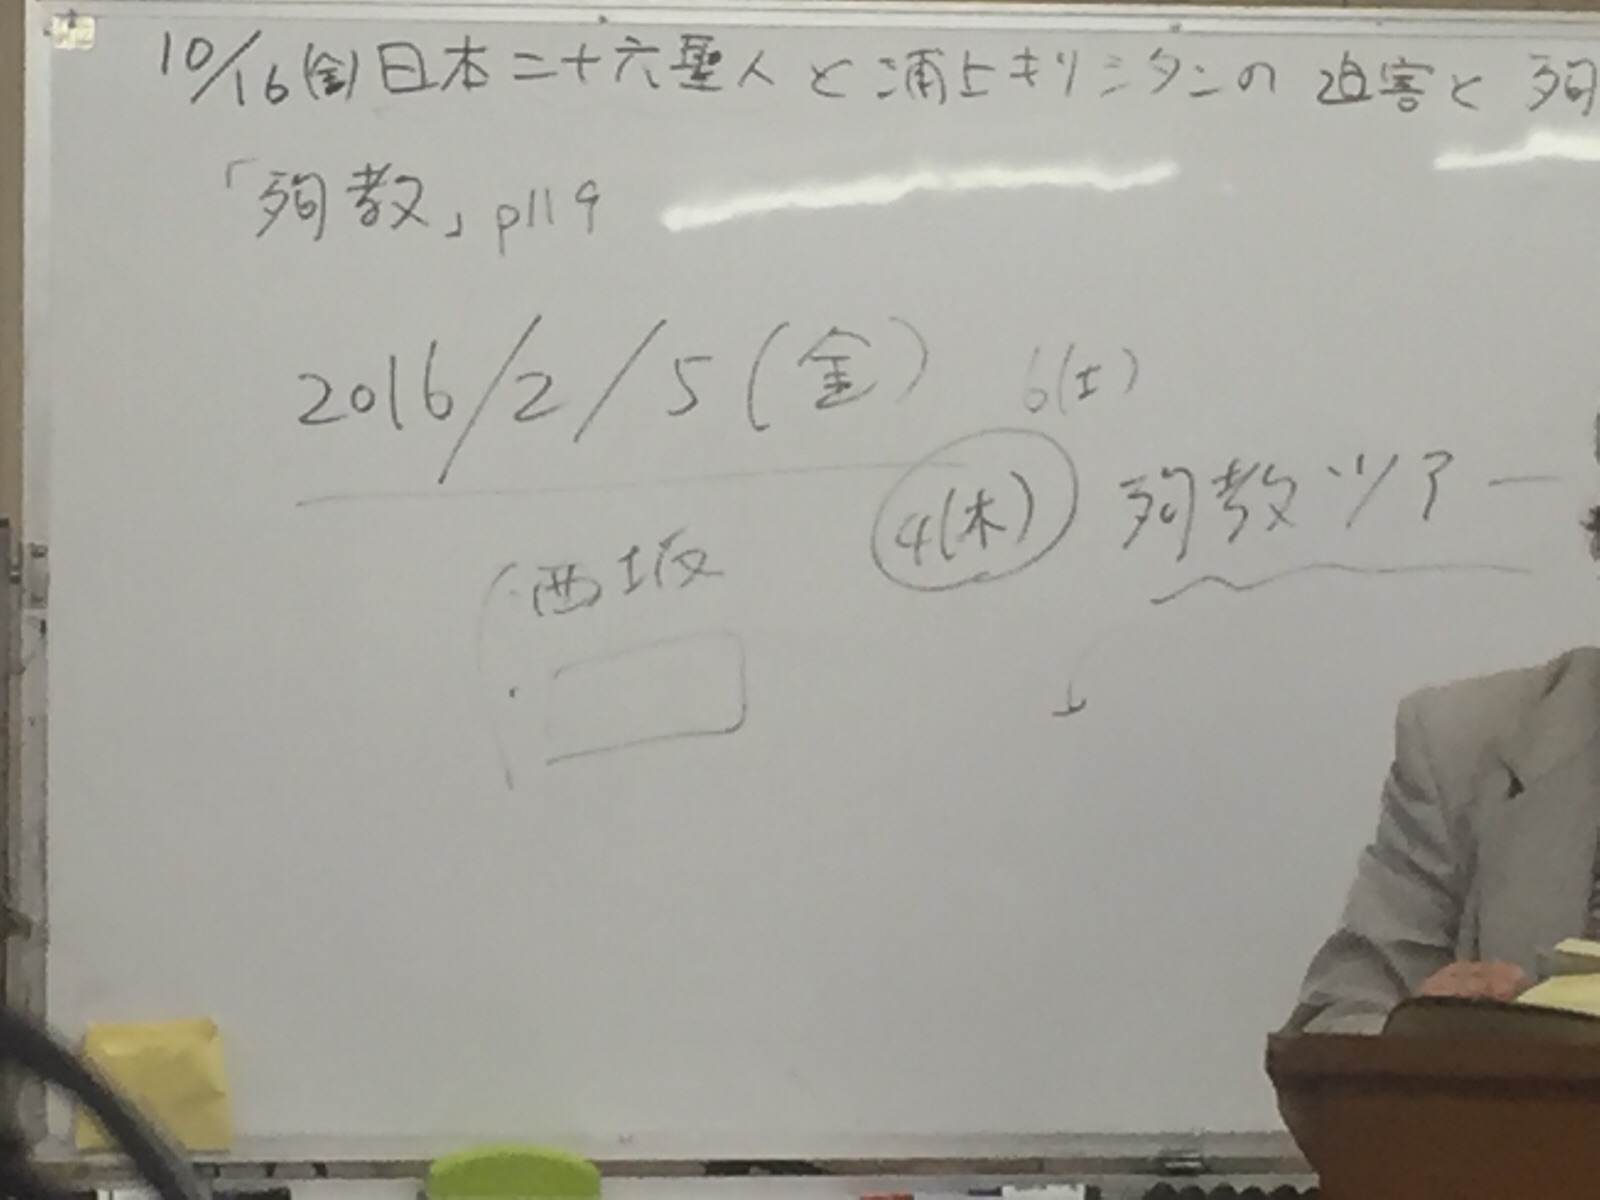 10/16(金)日本二十六聖人と浦上キリシタンの迫害と殉
「殉教」p119
2016/2/5(金) 6(土)
4(木) 殉教ツアー
西坂